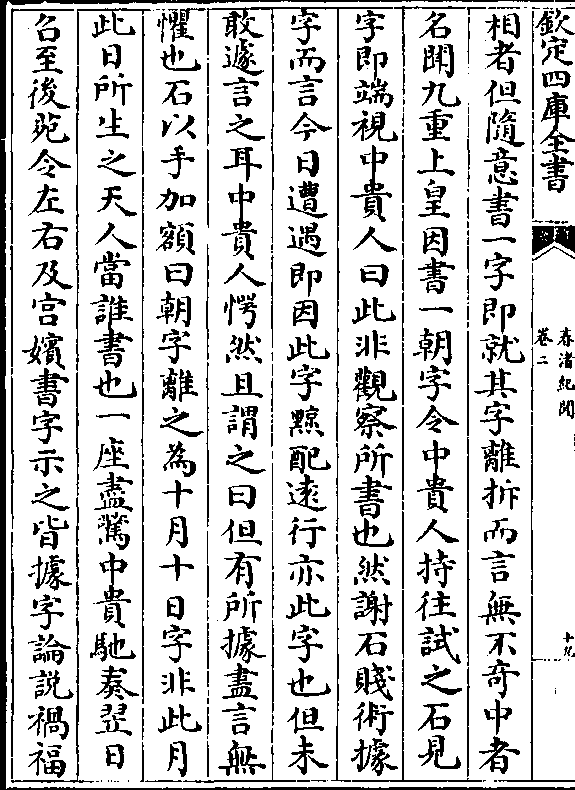 欽定四庫全書
春渚紀聞
卷二
十九
相者但隨意書一字即就其字離拆而言無不奇中者
名聞九重上皇因書一朝字令中貴人持往試之石見
字即端視中貴人曰此非觀察所書也然謝石賤術據
字而言今日遭遇即因此字黥配逺行亦此字也但未
敢遽言之耳中貴人愕然且謂之曰但有所據盡言無
懼也石以手加額曰朝字離之為十月十日字非此月
此日所生之天人當誰書也一座盡驚中貴馳奏翌日
召至後苑令左右及宫嬪書字示之皆據字論説禍福